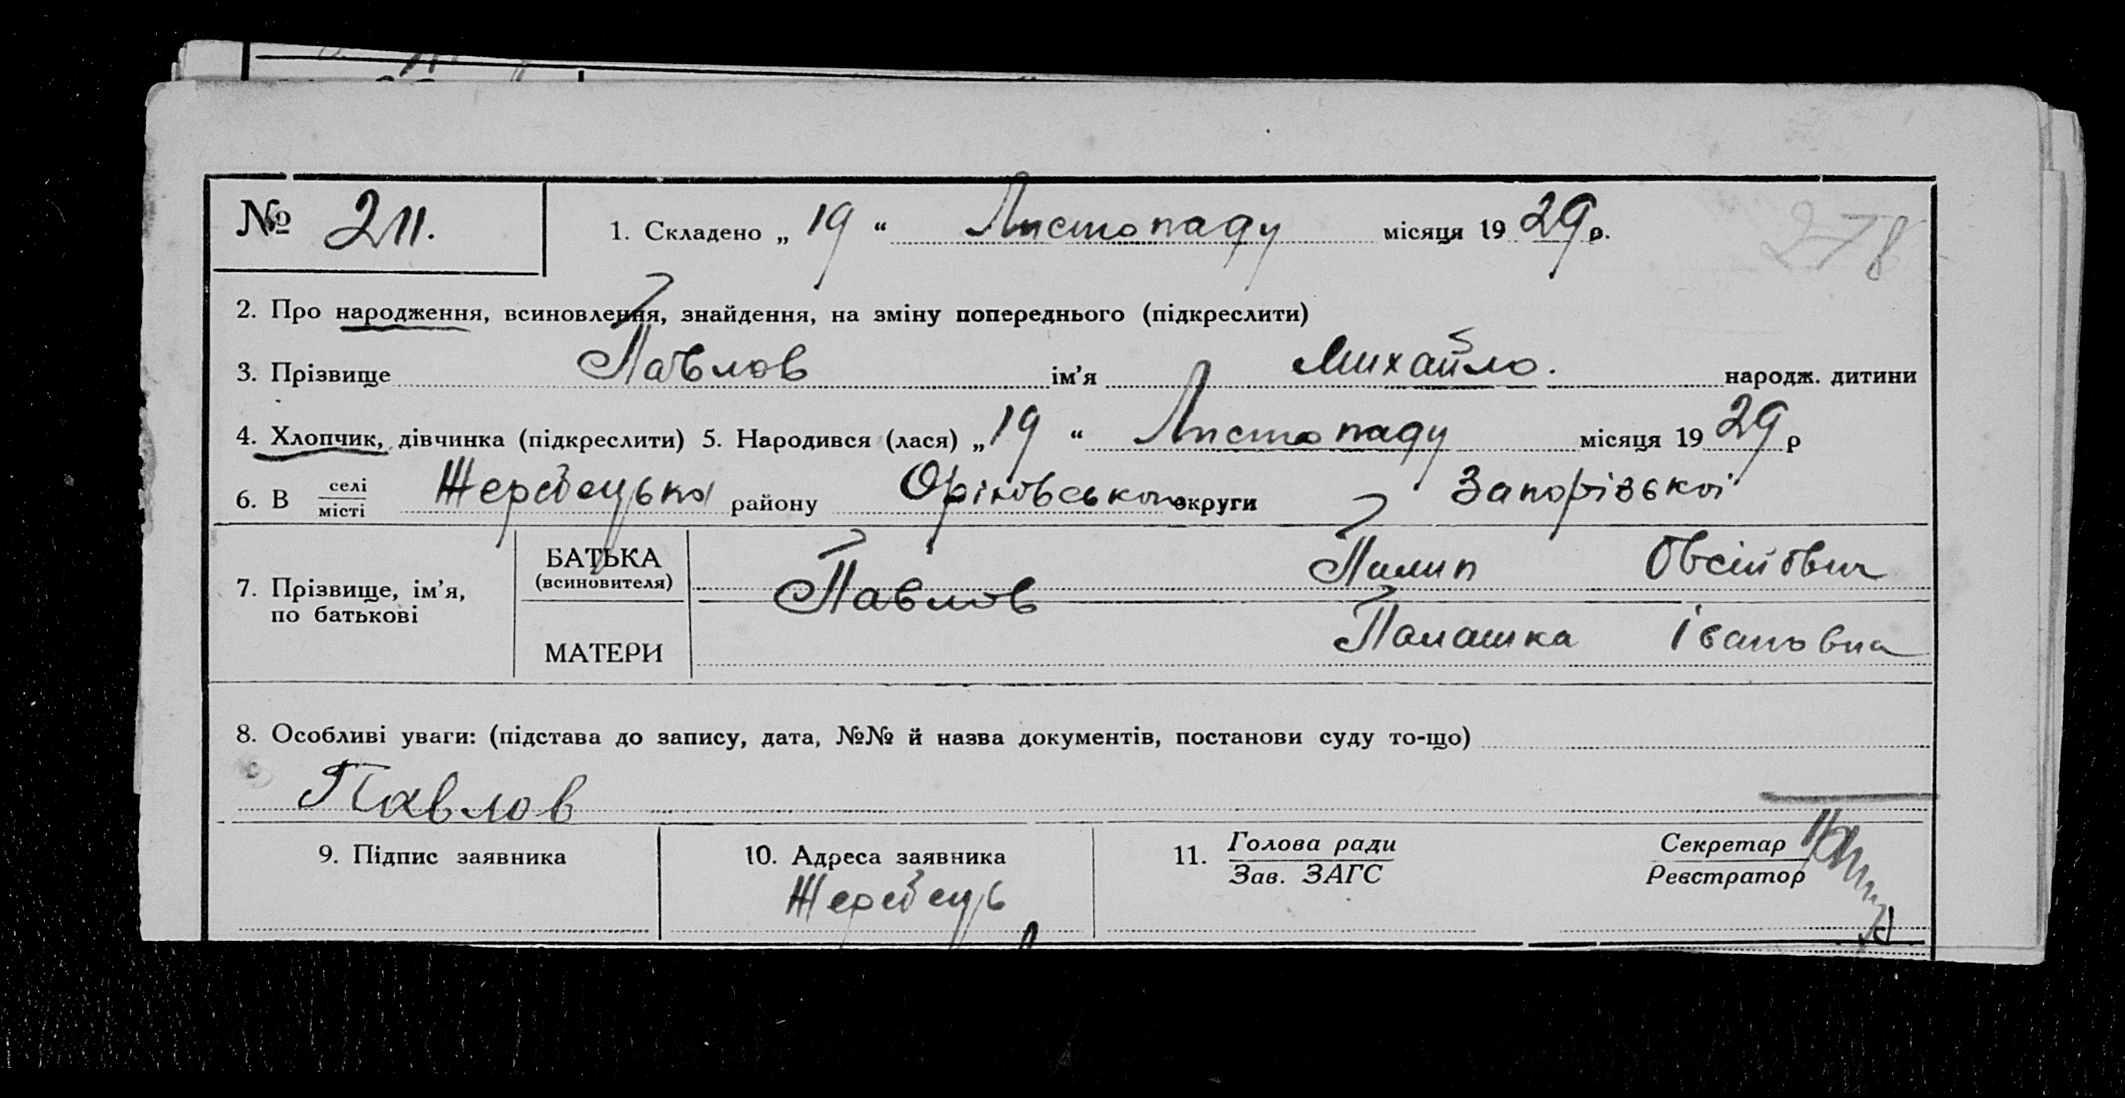 № 211. 1. Складено „ 19 “ Листопаду місяця 19 29 р. 278
2. Про народження, всиновлення, знайдення, на зміну попереднього (підкреслити)
3. Прізвище Павлов ім’я Михайло. народж. дитини
4. Хлопчик, дівчинка (підкреслити) 5. Народився (лася) „ 19 “ Листопаду місяця 19 29 р
6. В селі місті Жеребецько району Оріхівського округи Запорізької
7. Прізвище, ім’я, по батькові
БАТЬКА (всиновителя) Павлов Пилип Овсійович
МАТЕРИ Палашка Івановна
8. Особливі уваги: (підстава до запису, дата, №№ й назва документів, постанови суду то-що)
Павлов
9. Підпис заявника 10. Адреса заявника 11. Голова ради Зав. ЗАГС Секретар Реєстратор
Жеребець